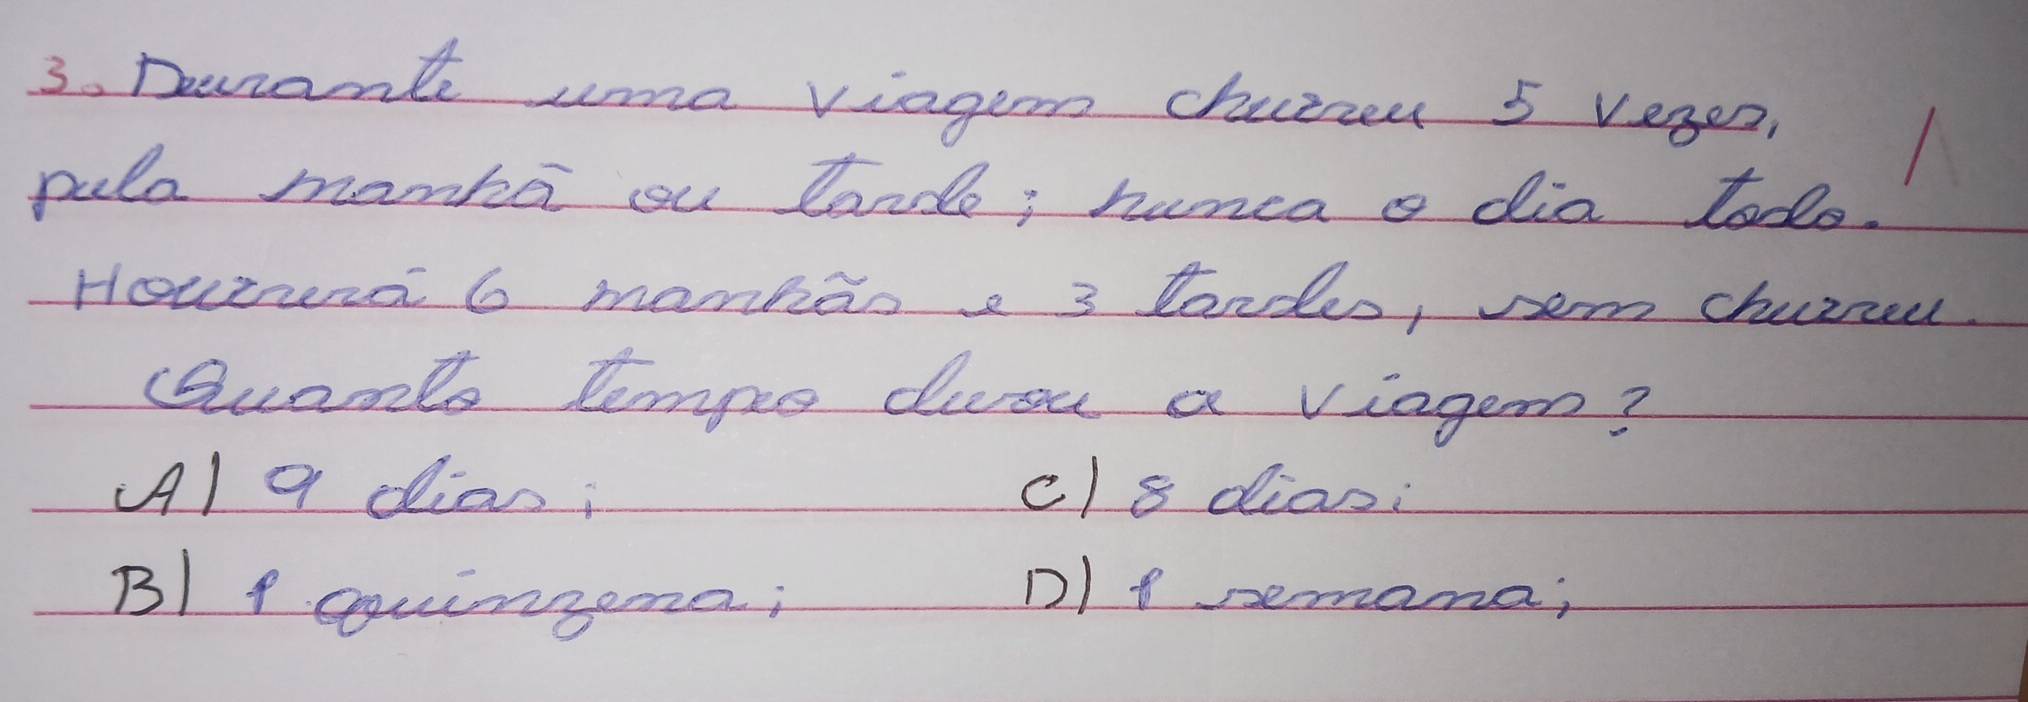 3. Durante uma viagem chuveu 5 vezes,
pela manhã ou tarde; nunca o dia todo.
Houverá 6 manhãs e 3 tardes, sem chuveu.
Quanto tempo durou a viagem?
A) 9 dias; C) 8 dias;
B) 1 quinzena; D) 1 semana;